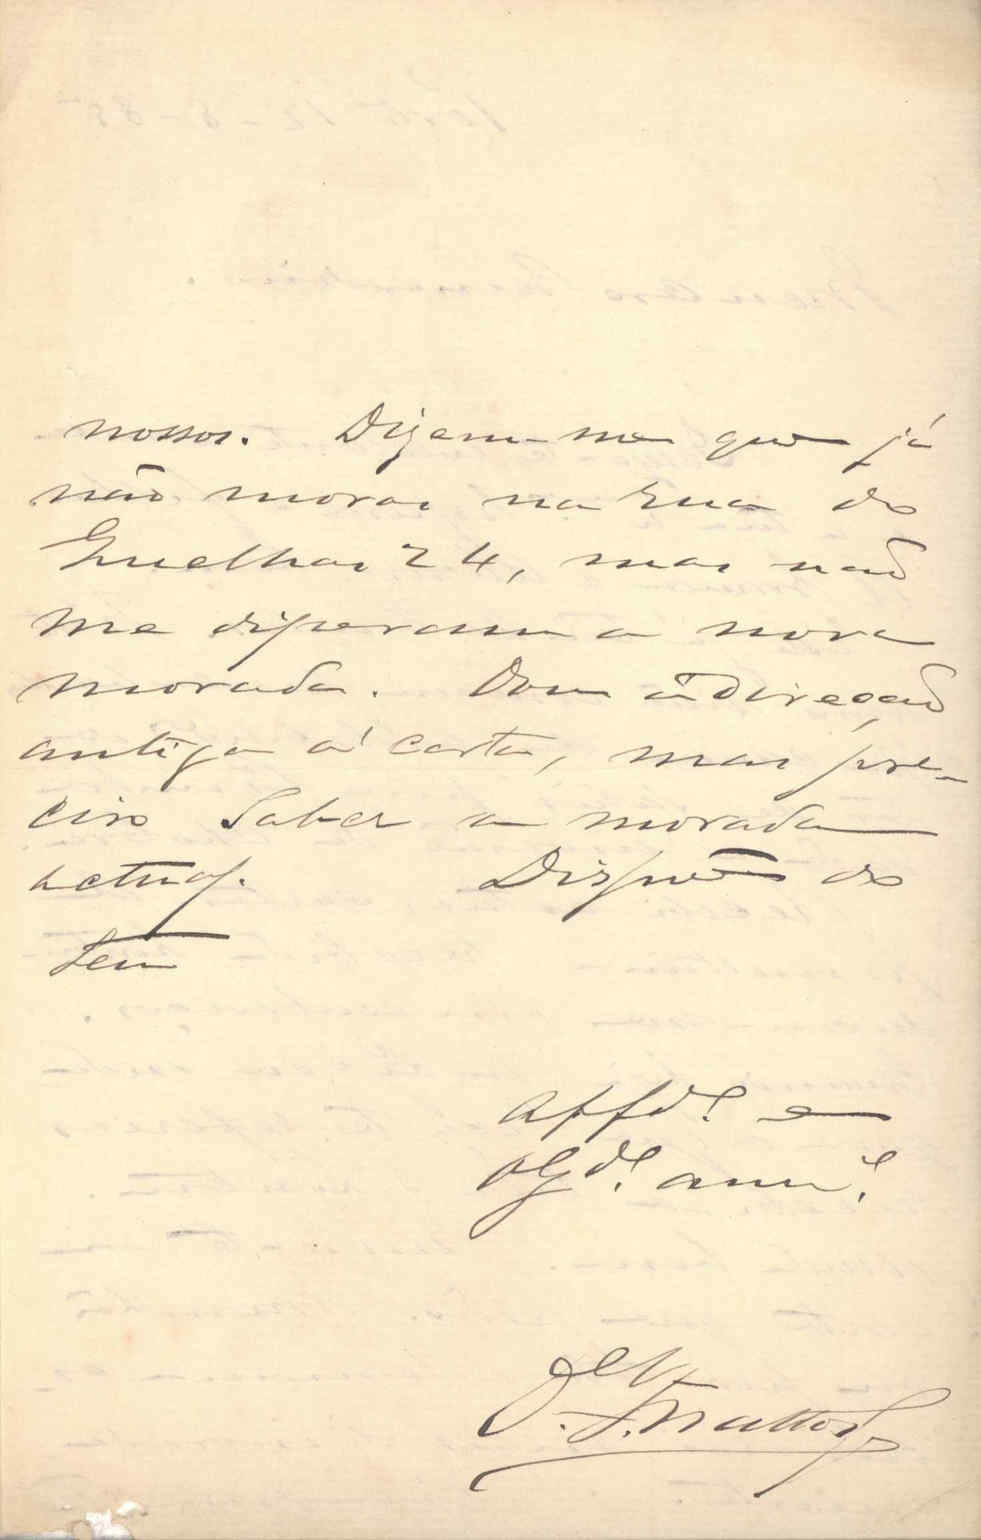 nossos. Dizem-me que já
não moras na rua do
Guelhas 24, mas não
me disseram a nova
morada. Dou a direcção
antiga á carta, mas pre-
ciso saber a morada
actual. Dispõe do
teu
affd.º e
obgd.º am.º
J. Mattos